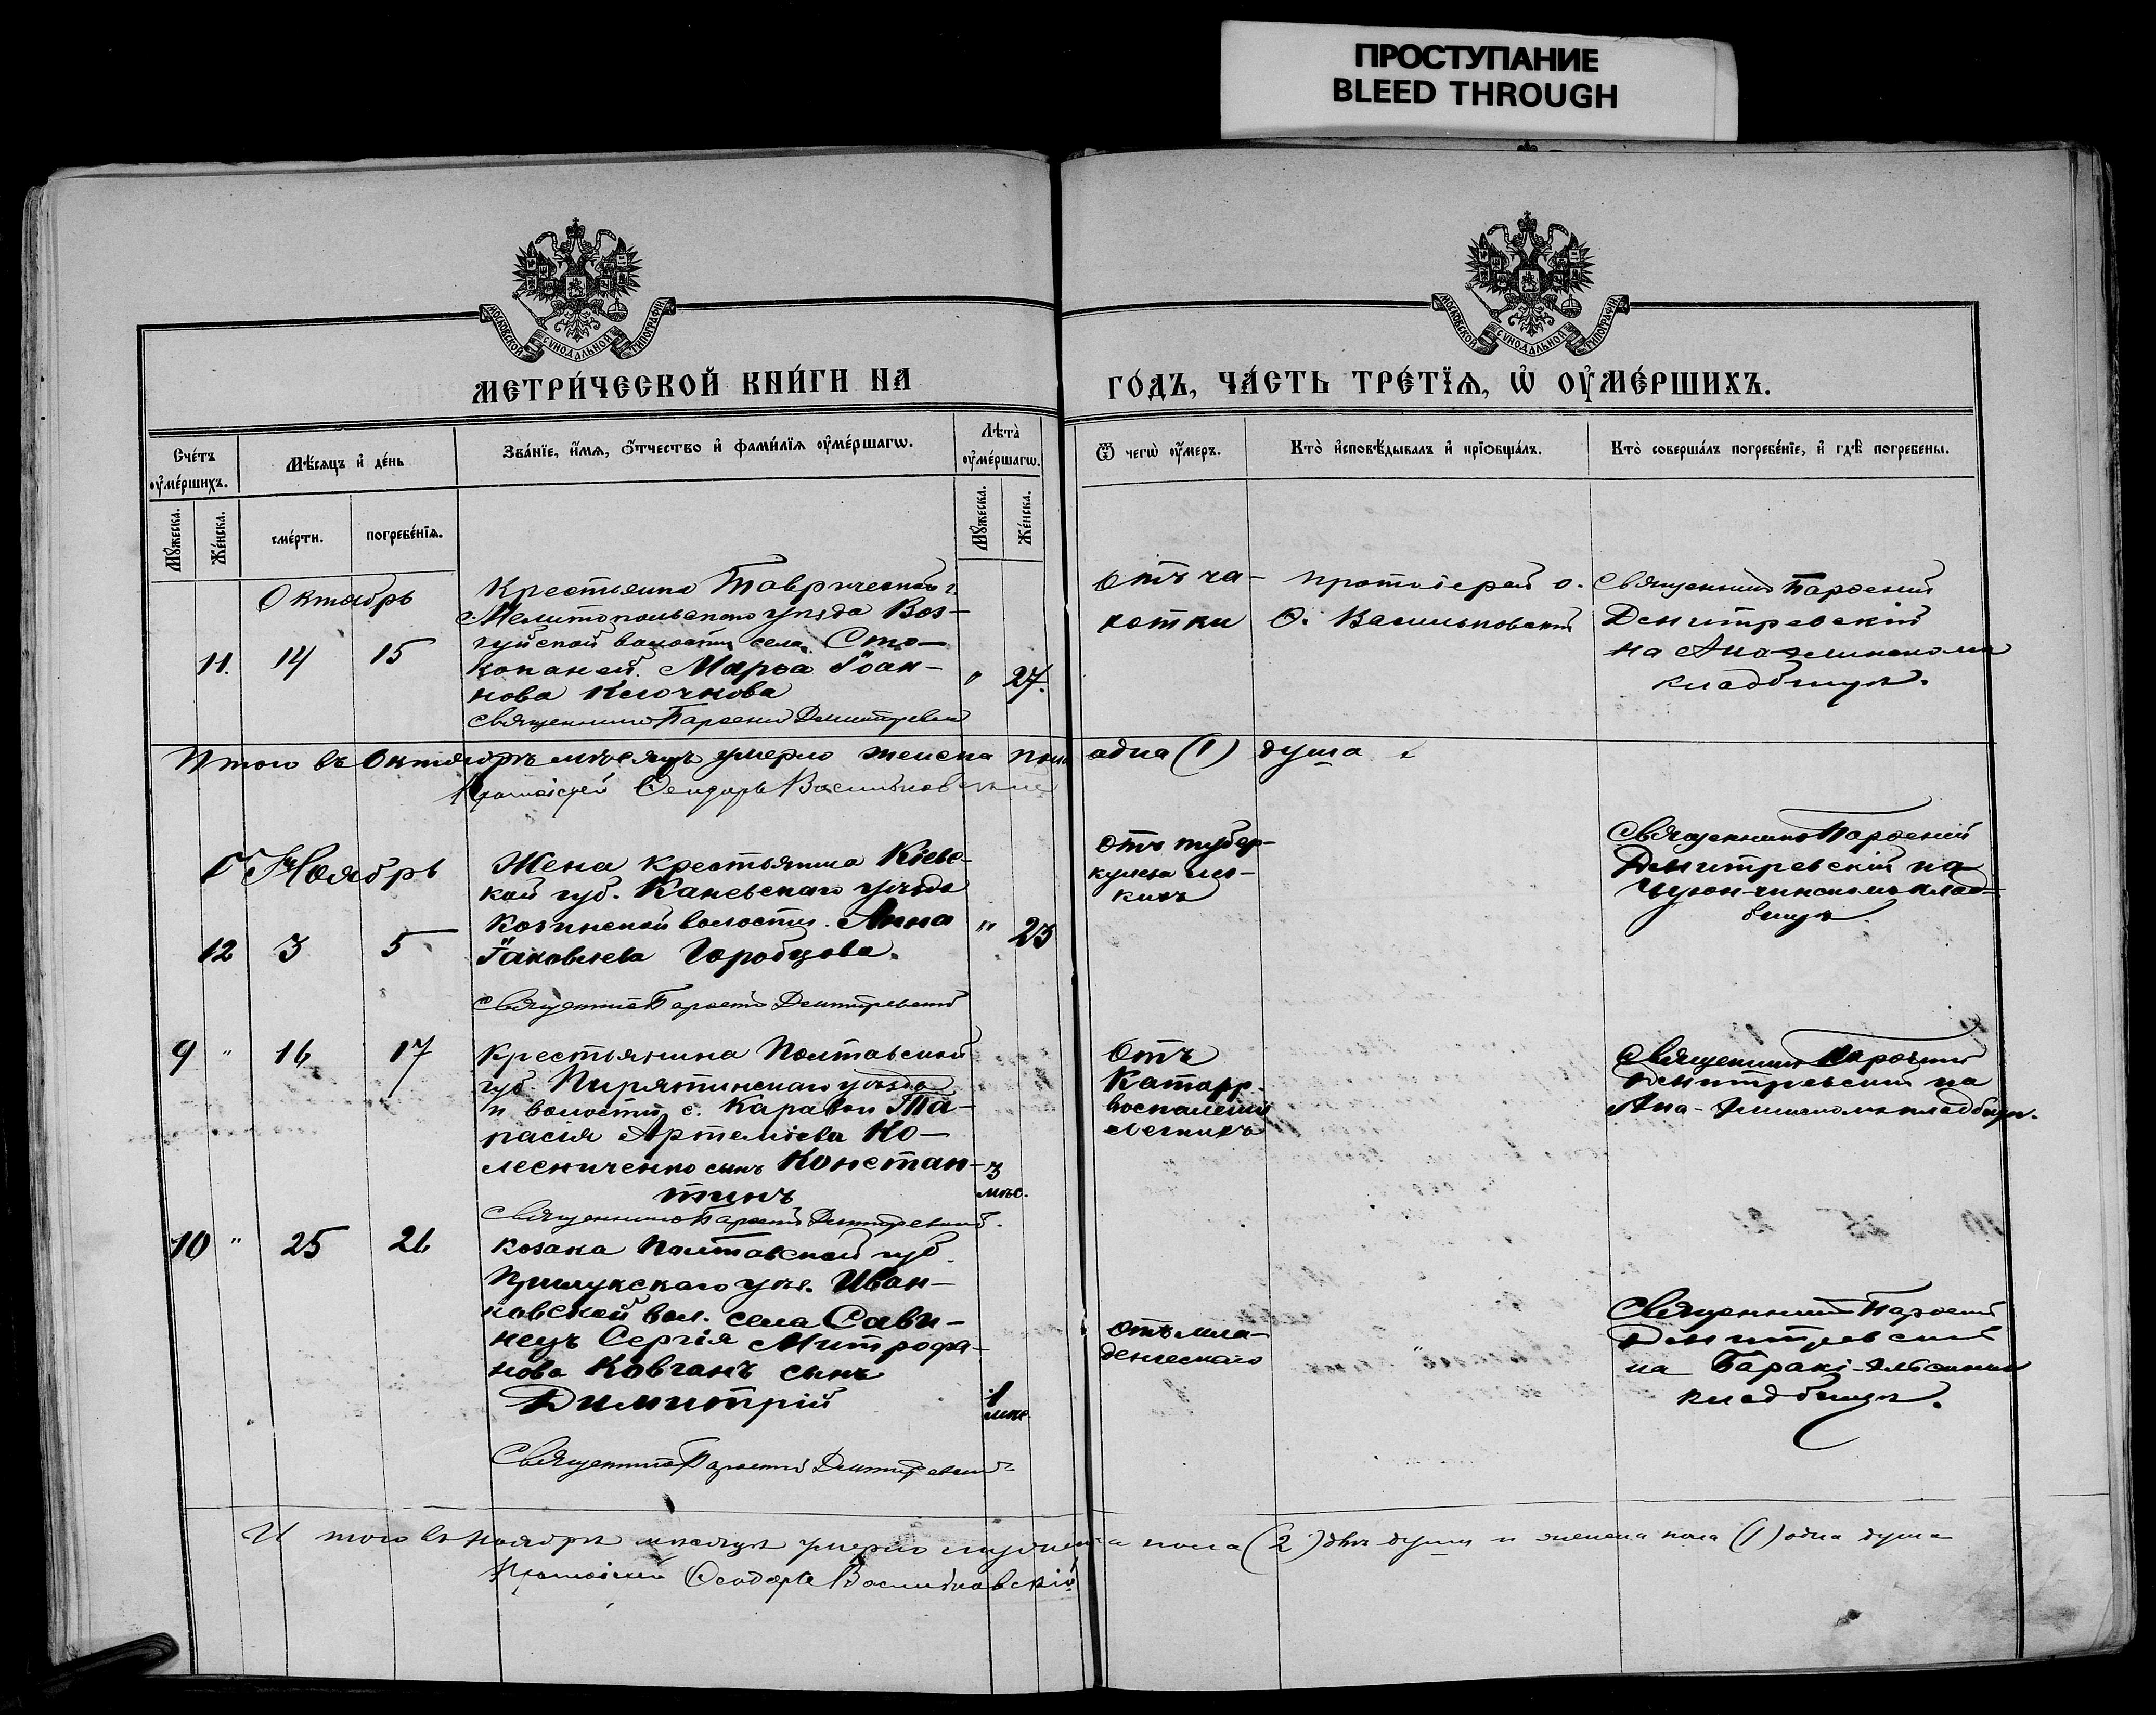 ПРОСТУПАНИЕ
BLEED THROUGH
МОСКОВСКОЙ СѴНОДАЛЬНОЙ ТИПОГРАФІИ
МОСКОВСКОЙ СѴНОДАЛЬНОЙ ТИПОГРАФІИ
МЕТРИ́ЧЕСКОЙ КНИ́ГИ НА
ГО́ДЪ, ЧА́СТЬ ТРЕ́ТЇѦ, Ѡ҆ ОУ҆МЕ́РШИХЪ.
Сче́тъ оу҆ме́ршихъ.
Мѣ́сѧцъ и҆ де́нь
Зва́нїе, и҆́мѧ, ѻ҆́тчество и҆ фами́лїѧ оу҆ме́ршагѡ.
Лѣ́та̀ оу҆ме́ршагѡ.
Ѿ чегѡ̀ оу҆́меръ.
Кто̀ и҆сповѣ́дывалъ и҆ прїѻбща́лъ.
Кто̀ соверша́лъ погребе́нїе, и҆ гдѣ̀ погребены.
Мꙋ́жеска.
Же́нска.
сме́рти.
погребе́нїѧ.
Мꙋ́жеска.
Же́нска.
Октябрь
11. 14 15
Крестьянка Таврической г.
Мелитопольскаго уѣзда
волости села Сто-
копаней. Марѳа Іоан-
нова Клочкова
" 27.
Священникъ Парѳеній Димитревскій
Отъ ча-
хотки
протоіерей о.
Ѳ. Васильковскій
Священникъ Парѳеній
Димитревскій
на
кладбищѣ.
Итого въ Октябрѣ мѣсяцѣ умерло женска пола одна (1) душа
Протоіерей Ѳеодоръ Васильковскій
Ноябрь
12 3 5
Жена крестьянина Кіевс-
кой губ. Каневскаго уѣзда
Козинской волости. Анна
Іаковлева Горобцова.
" 23
Священникъ Парѳеній Димитревскій
Отъ тубер-
кулеза лег-
кихъ
Священникъ Парѳеній
Димитревскій на
клад-
бищѣ.
9 " 16 17
Крестьянина Полтавской
губ. Пирятинскаго уѣзда
и волости с.
Та-
расія Артеміева Ко-
лесниченко сынъ Констан-
тинъ
3
мѣс.
Священникъ Парѳеній Димитревскій.
Отъ
Катарр.
воспаленія
легкихъ
Священникъ Парѳеній
Димитревскій на
кладбищѣ.
10 " 25 26
козака Полтавской губ.
Прилукскаго уѣз. Иван-
ковской вол. села Сави-
нецъ Сергія Митрофа-
нова Ковганъ сынъ
Димитрій
1
мѣс.
Священникъ Парѳеній Димитревскій
Отъ мла-
денческаго
Священникъ Парѳеній
Димитревскій
на
кладбищѣ.
Итого въ Ноябрѣ мѣсяцѣ умерло мужеска пола (2) двѣ души и женска пола (1) одна душа
Протоіерей Ѳеодоръ Васильковскій